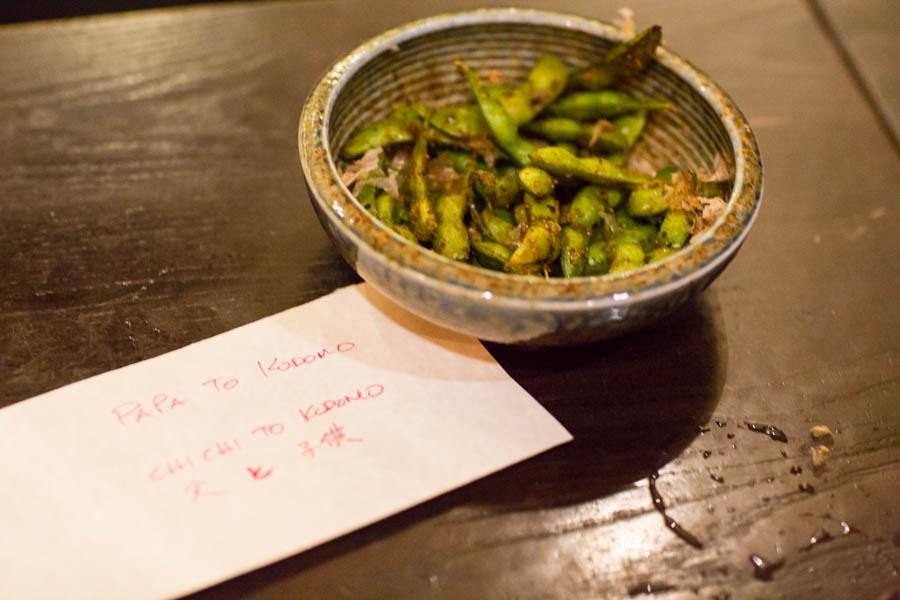 PAPA TO KODOMO
CHI CHI TO KODOMO
父 と 子供